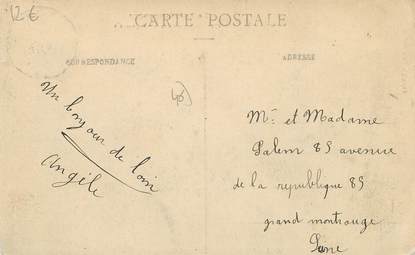 12 €
CARTE POSTALE
CORRESPONDANCE
ADRESSE
40
Un bonjour de loin
Angèle
Mr et Madame
Salem 85 avenue
de la republique 85
grand montrouge
Seine